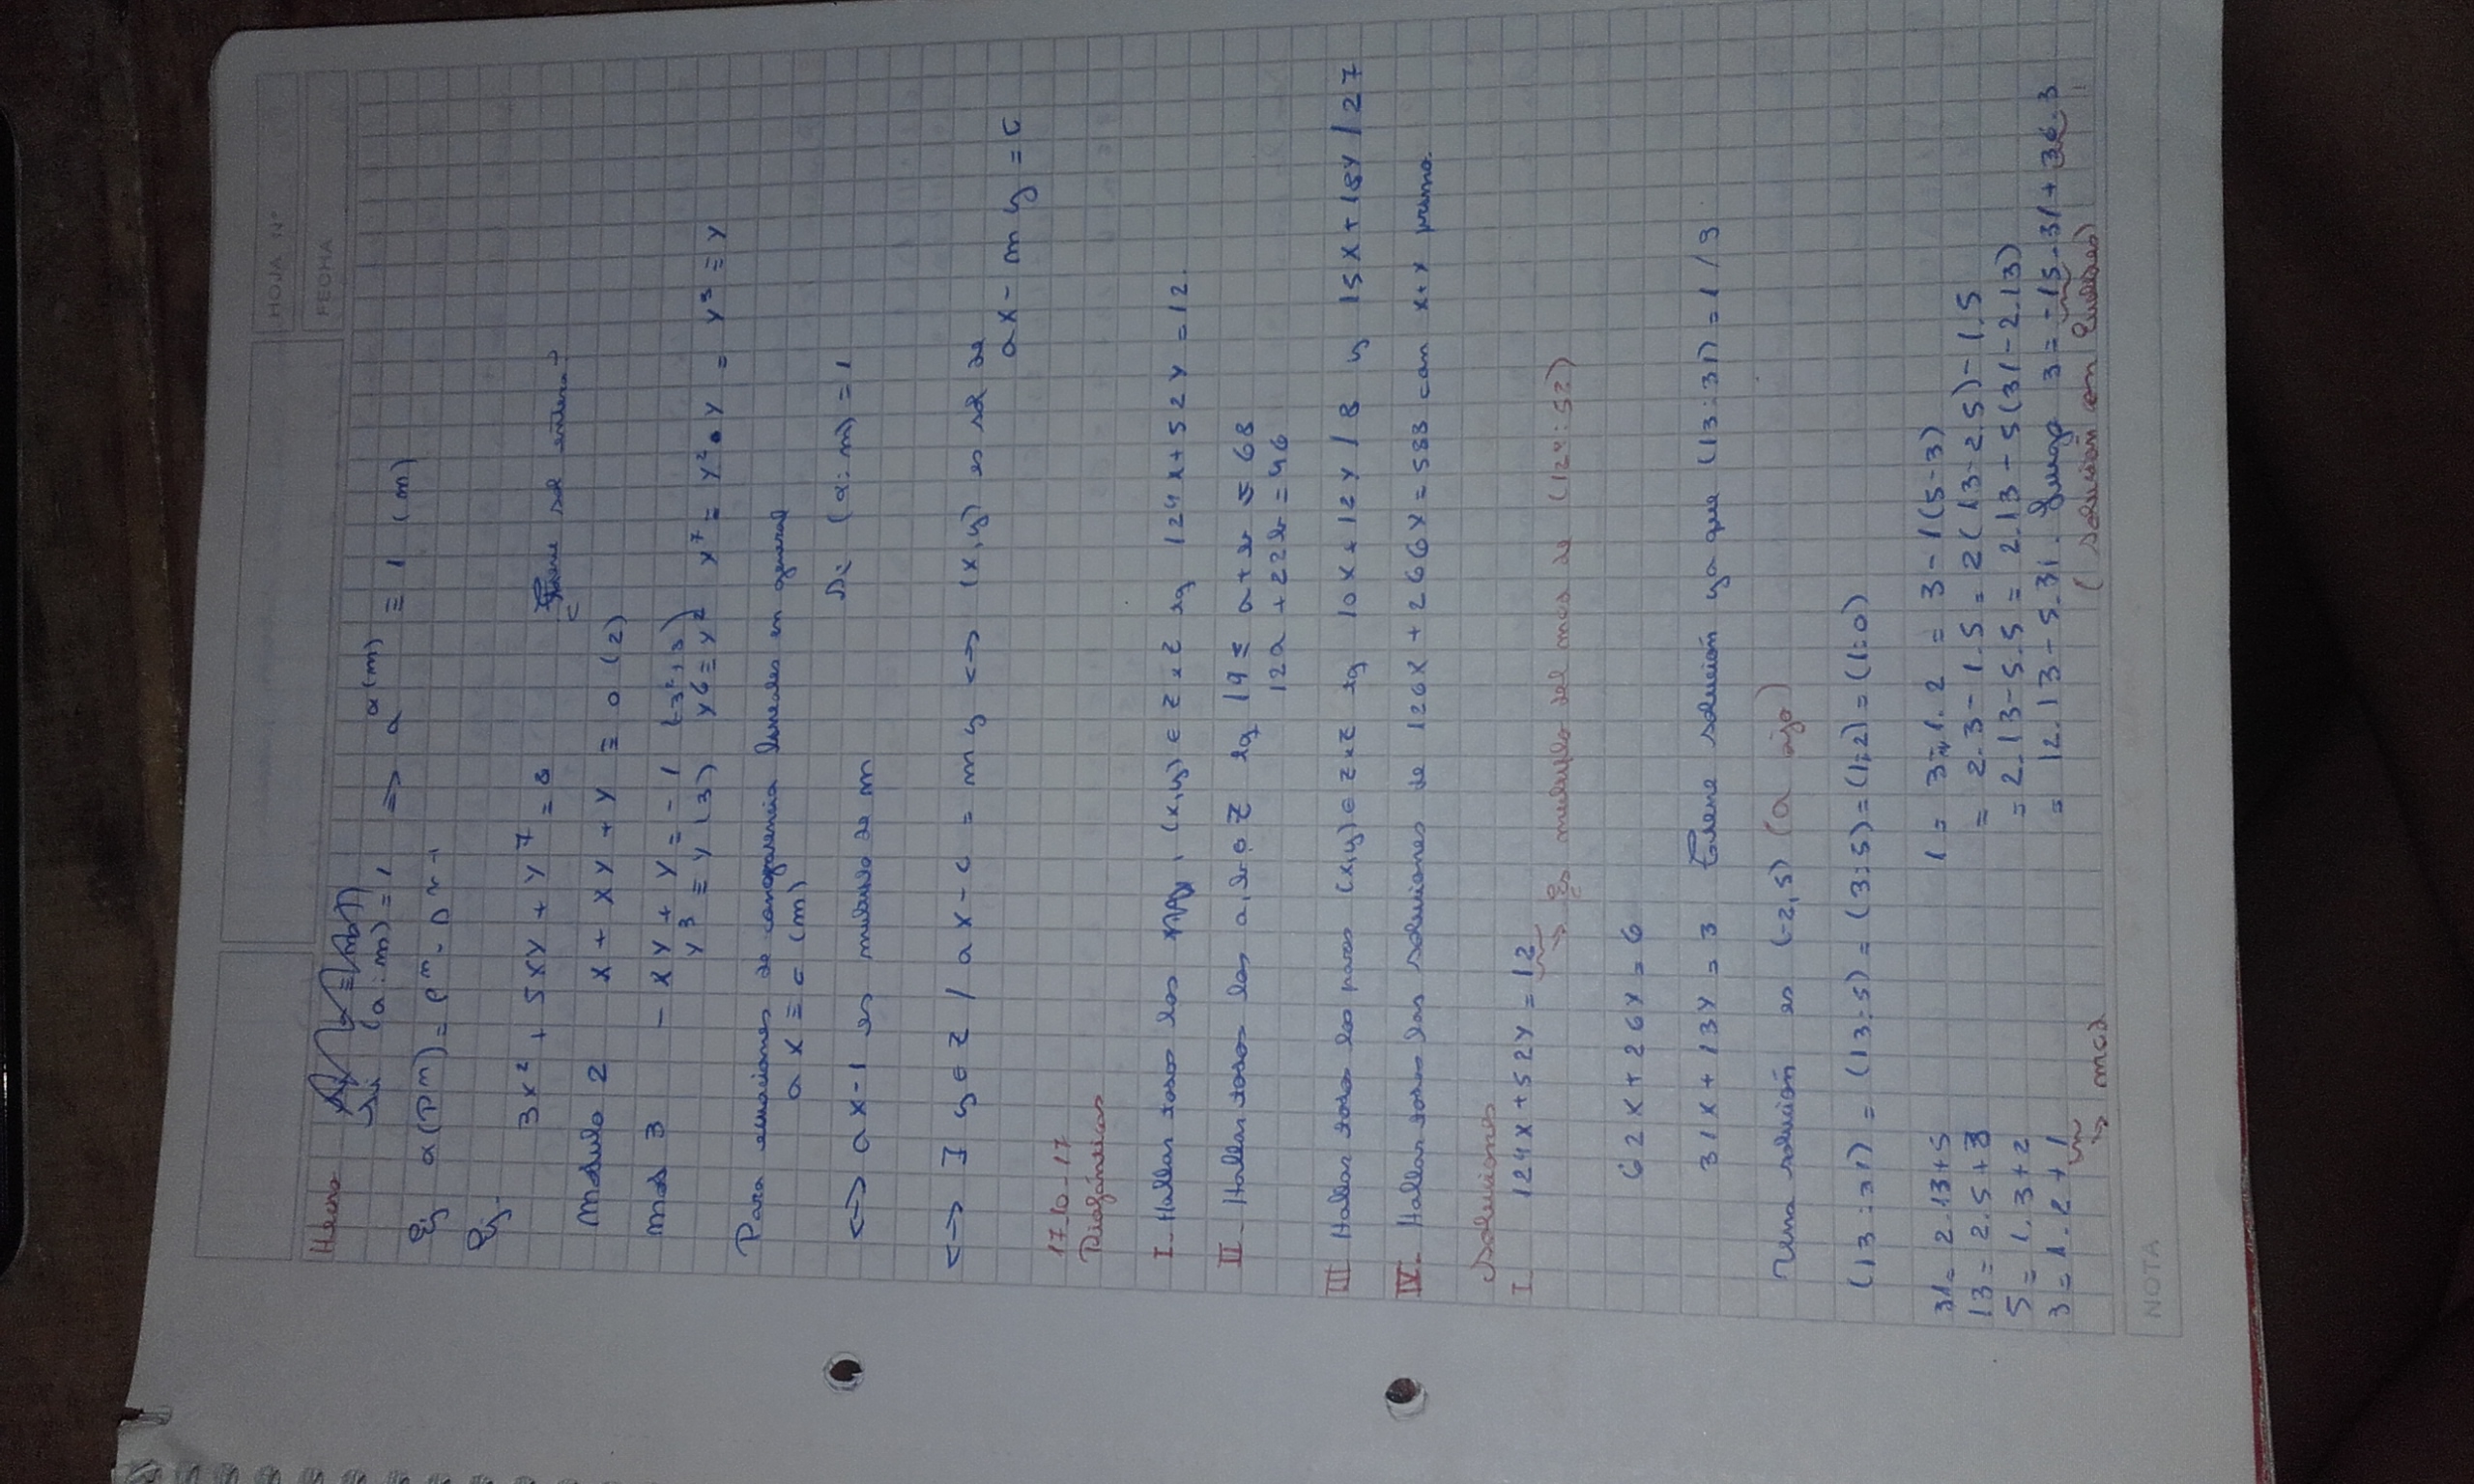 HOJA N°
FECHA
Hecho
Si (a:m) = 1 => a^α(m) ≡ 1 (m)
Ej α(P^n) = P^n - P^n-1
Ej.
3x² + 5xy + y⁷ = 8 ¿Tiene sol entera?
Módulo 2 x + xy + y ≡ 0 (2)
mod 3 - xy + y = - 1
y³ ≡ y (3) y⁶ ≡ y² y⁷ = y².y = y³ ≡ y
Para ecuaciones de congruencia lineales en general
a x ≡ c (m)
Si (a:m) = 1
<-> ax-1 es multiplo de m
<-> ∃ y ∈ Z / ax - c = my <-> (x,y) es sol de
ax - my = c
17-10-17
Diofánticas
I- Hallar todos los (x,y) ∈ Z x Z tq 124x + 52y = 12.
II- Hallar todos los a, b ∈ Z tq 19 ≤ a + b ≤ 68
12a + 22b = 46
III Hallar todos los pares (x,y) ∈ Z x Z tq 10x + 12y / 8 y 15x + 18y / 27
IV- Hallar todas las soluciones de 126x + 266y = 583 con x+y primo.
Soluciones
I 124x + 52y = 12
¿Es multiplo del mcd de (124:52)
62x + 26y = 6
31x + 13y = 3 Tiene solución ya que (13:31) = 1 / 3
Una solución es (-2,5) (a ojo)
(13:31) = (13:5) = (3:5) = (1:2) = (1:0)
31 = 2.13+5 1 = 3-1.2 = 3-1(5-3)
13 = 2.5+3 = 2.3-1.5 = 2(13-2.5)-1.5
5 = 1.3+2 = 2.13-5.5 = 2.13-5(31-2.13)
3 = 1.2+1 = 12.13-5.31. Luego 3 = -15.31 + 36.3
mcd (Solución con Euclides)
NOTA